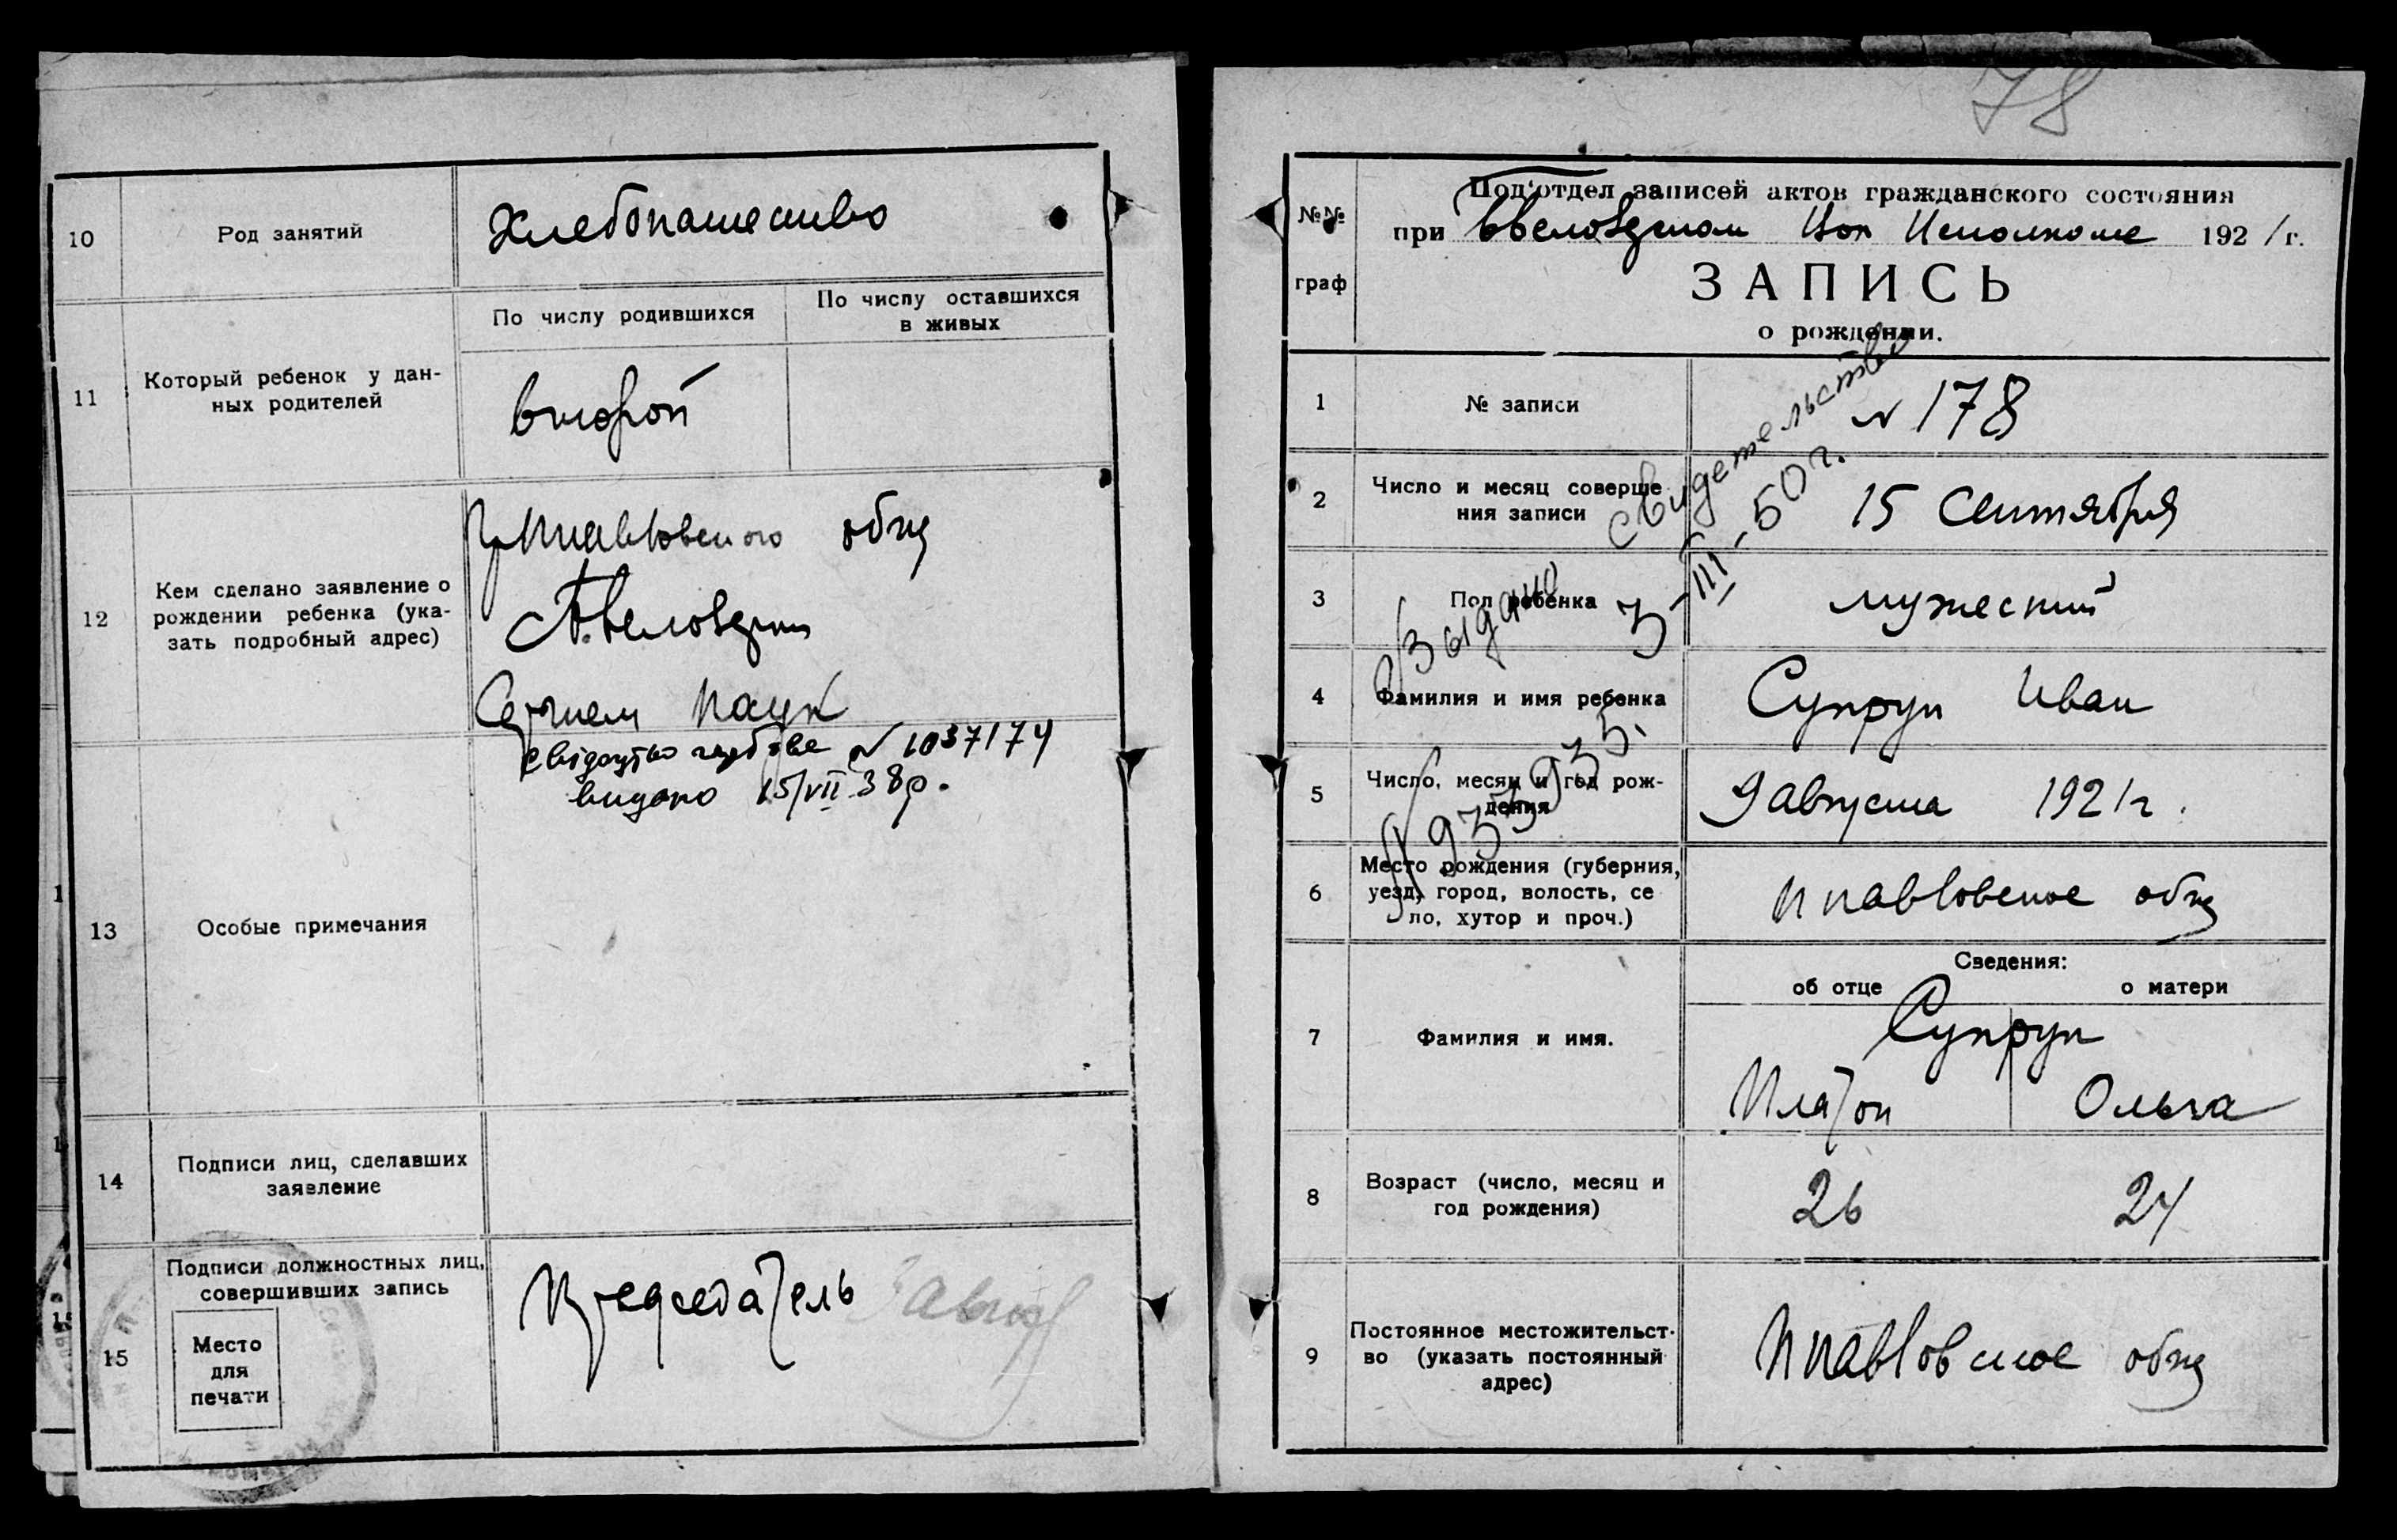 10
Род занятий
Хлебопашество
11
Который ребенок у дан-
ных родителей
По числу родившихся
По числу оставшихся
в живых
второй
12
Кем сделано заявление о
рождении ребенка (ука-
зать подробный адрес)
общ
Паук
свідоцтво №1037174
видано 15/VII 38р.
13
Особые примечания
14
Подписи лиц, сделавших
заявление
15
Подписи должностных лиц,
совершивших запись
Место
для
печати
Председатель
78
№№
граф
Под'отдел записей актов гражданского состояния
при Исполкоме 1921г.
ЗАПИСЬ
о рождении.
1
№ записи
N 178
2
Число и месяц соверше
ния записи
15 Сентября
3
Пол ребенка
мужеский
4
Фамилия и имя ребенка
Супрун Иван
5
Число, месяц и год рож-
дения
9 августа 1921г.
6
Место рождения (губерния,
уезд, город, волость, се
ло, хутор и проч.)
общ
Сведения:
об отце
о матери
7
Фамилия и имя.
Супрун
Платон
Ольга
8
Возраст (число, месяц и
год рождения)
26
24
9
Постоянное местожительст-
во (указать постоянный
адрес)
общ
Выдано свидетельство
3-III-50г.